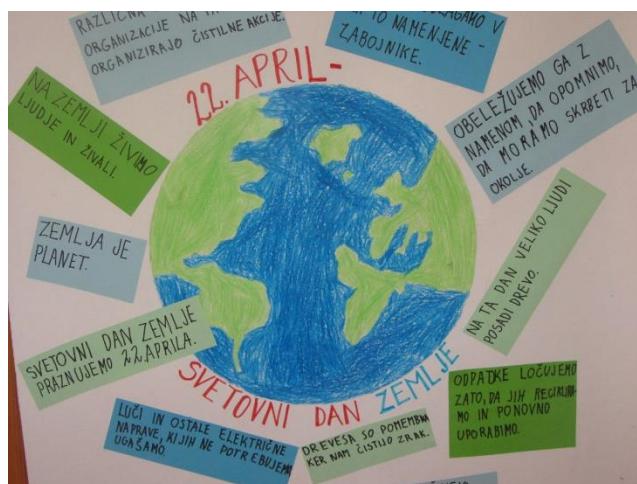 RAZLIČNA
ORGANIZACIJE NA
ORGANIZIRAJO ČISTILNE AKCIJE.
TO NAMENJENE -
ZABOJNIKE.
22. APRIL-
NA ZEMLJI ŽIVIMO
LJUDJE IN ŽIVALI.
OBELEŽUJEMO GA Z
NAMENOM, DA OPOMNIMO,
DA MORAMO SKRBETI ZA
OKOLJE.
ZEMLJA JE
PLANET.
NA TA DAN VELIKO LJUDI
POSADI DREVO.
SVETOVNI DAN ZEMLJE
PRAZNUJEMO 22. APRILA.
SVETOVNI DAN ZEMLJE
ODPADKE LOČUJEMO
ZATO, DA JIH RECIKLIRA-
MO IN PONOVNO
UPORABIMO.
LUČI IN OSTALE ELEKTRIČNE
NAPRAVE, KI JIH NE POTREBUJEMO
UGAŠAMO.
DREVESA SO POMEMBNA
KER NAM ČISTIJO ZRAK.